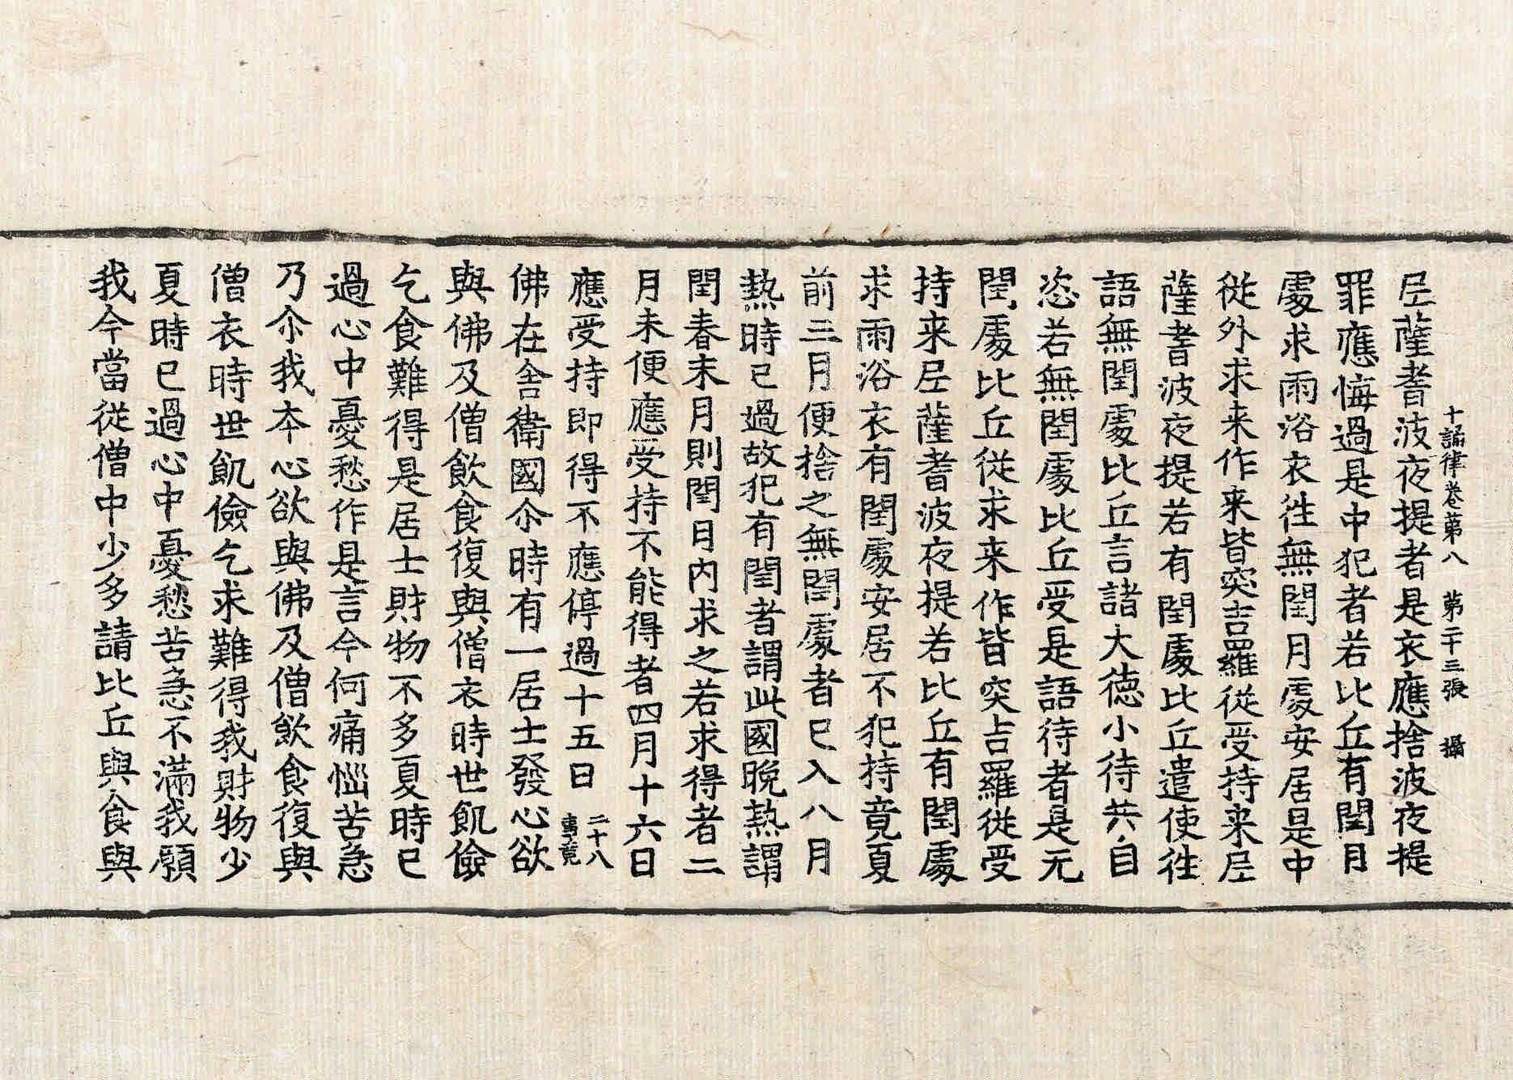 十誦律卷第八　第二十三張　攝
尼薩耆波夜提者是衣應捨波夜提
罪應悔過是中犯者若比丘有閏月
處求雨浴衣徃無閏月處安居是中
從外求来作来皆突吉羅從受持来尼
薩耆波夜提若有閏處比丘遣使徃
語無閏處比丘言諸大德小待共自
恣若無閏處比丘受是語待者是无
閏處比丘從求来作皆突吉羅從受
持来尼薩耆波夜提若比丘有閏處
求雨浴衣有閏處安居不犯持竟夏
前三月便捨之無閏處者已入八月
熱時已過故犯有閏者謂此國晚熱謂
閏春末月則閏月內求之若求得者二
月未便應受持不能得者四月十六日
應受持即得不應停過十五日二十八事竟
佛在舍衛國尒時有一居士發心欲
與佛及僧飲食復與僧衣時世飢儉
乞食難得是居士財物不多夏時已
過心中憂愁作是言今何痛惱苦急
乃尒我本心欲與佛及僧飲食復與
僧衣時世飢儉乞求難得我財物少
夏時已過心中憂愁苦急不滿我願
我今當從僧中少多請比丘與食與